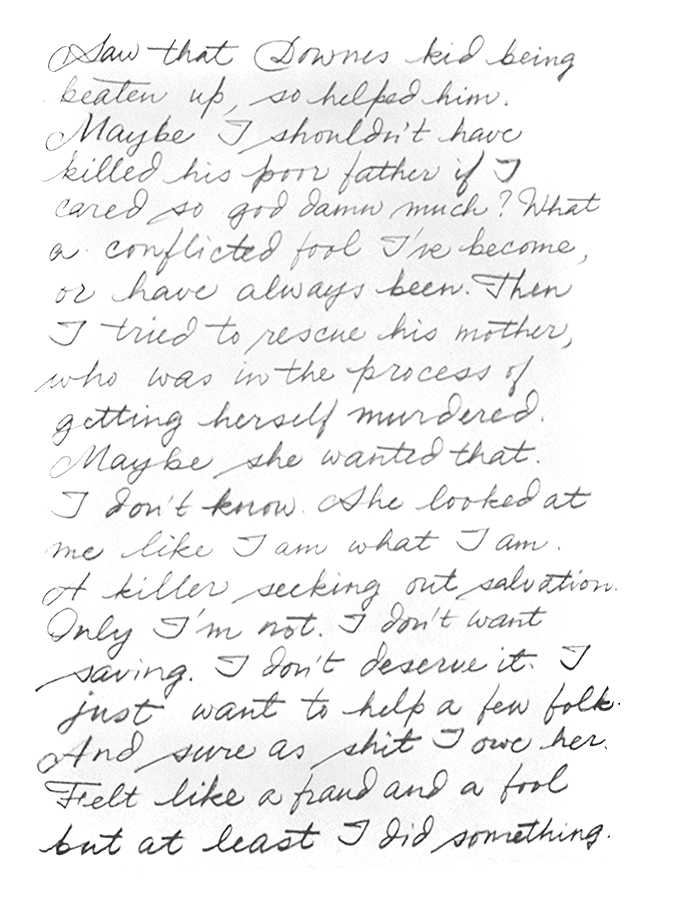 Saw that Downes kid being
beaten up, so helped him.
Maybe I shouldn't have
killed his poor father if I
cared so god damn much? What
a conflicted fool I've become,
or have always been. Then
I tried to rescue his mother,
who was in the process of
getting herself murdered.
Maybe she wanted that.
I don't know. She looked at
me like I am what I am.
A killer seeking out salvation.
Only I'm not. I don't want
saving. I don't deserve it. I
just want to help a few folk.
And sure as shit I owe her.
Felt like a fraud and a fool
but at least I did something.